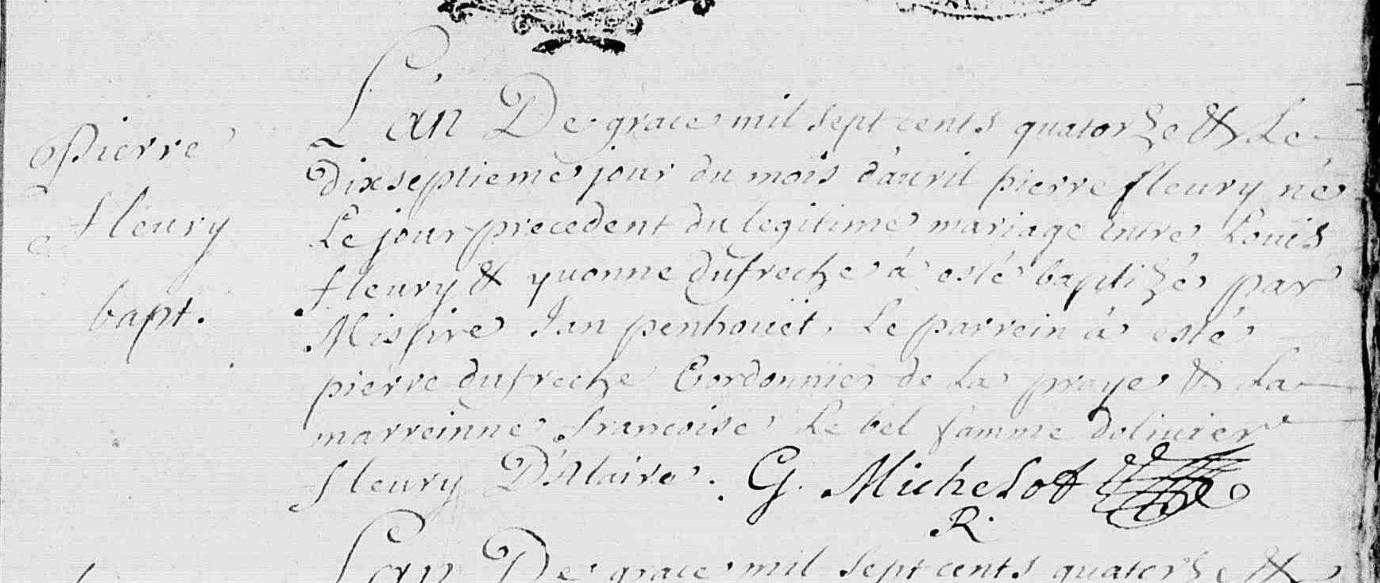 Pierre
fleury
bapt.
L'an De grace mil sept cents quatorze & Le
dixseptieme jour du mois d'auril pierre fleury né
Le jour precedent du legitime mariage entre Louis
fleury & yuonne dufreche à esté baptizé par
Missire Jan penhouët. Le parrein à esté
pierre dufreche Cordonnier de La praye & La
marreinne francoise Le bel famme doliuier
fleury D'Alaire. G. Michelot
R.
L'an De grace mil sept cents quatorze &